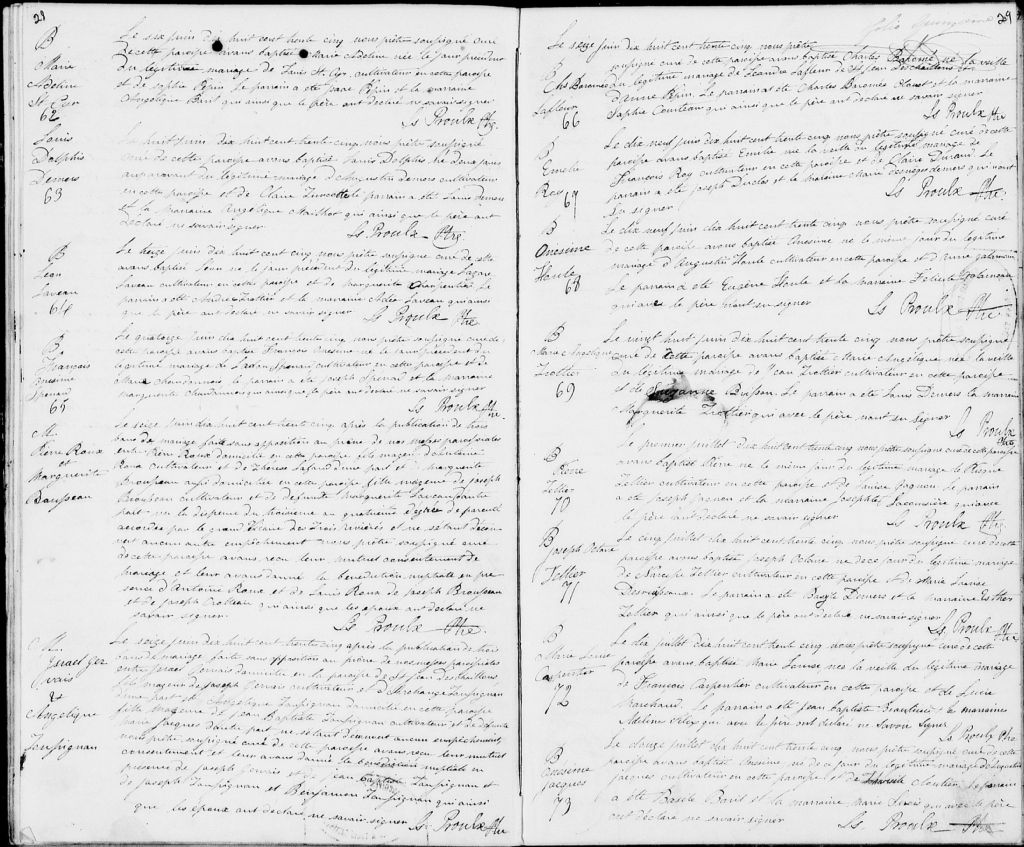 23
B
Marie
Adeline
St Cyr
62
Le six juin dix huit cent trente cinq nous prêtre soussigné curé
de cette paroisse avons baptisé Marie Adeline née le jour précédent
du légitime mariage de Louis St Cyr cultivateur en cette paroisse
et de Sophie Pepin Le parrain a été Isaac Pepin et la marraine
Angélique Baril qui ainsi que le père ont déclaré ne savoir signer
Ls Proulx Ptre
Louis
Dolphis
Demers
63
Le huit juin dix huit cent trente cinq nous prêtre soussigné
curé de cette paroisse avons baptisé Louis Dolphis né deux jours
auparavant du légitime mariage d'Augustin Demers cultivateur
en cette paroisse et de Claire Turcotte le parrain a été Louis Demers
et la marraine Angélique Mailhot qui ainsi que le père ont
déclaré ne savoir signer
Ls Proulx Ptre
B
Léon
Laveau
64
Le treize juin dix huit cent trente cinq nous prêtre soussigné curé de cette
avons baptisé Léon né le jour précédent du légitime mariage Lazare
Laveau cultivateur en cette paroisse et de Marguerite Charpentier Le
parrain a été André Trottier et la marraine Adée Laveau qui ainsi
que le père ont déclaré ne savoir signer
Ls Proulx Ptre
B
François
Onésime
Spenard
65
Le quatorze juin dix huit cent trente cinq nous prêtre soussigné curé de
cette paroisse avons baptisé François Onésime né le jour précédent du
légitime mariage de Spenard cultivateur en cette paroisse et de
Marie Chandonnais le parrain a été Joseph Spenard et la marraine
Marguerite Chandonnais qui ainsi que le père ont déclaré ne savoir signer
Ls Proulx Ptre
M.
Pierre Roux
et
Marguerite
Brousseau
Le seize juin dix huit cent trente cinq après la publication de trois
bans de mariage faite sans opposition au prône de nos messes paroissiales
entre Pierre Roux domicilié en cette paroisse fils majeur d'Antoine
Roux cultivateur et de Thérèse Lafond d'une part et Marguerite
Brousseau aussi domiciliée en cette paroisse fille majeure de Joseph
Brousseau cultivateur et de défunte Marguerite d'autre
part vu la dispense du troisième au quatrième degré de parenté
accordée par le grand Vicaire des Trois Rivières et ne s'étant décou-
vert aucun autre empêchement nous prêtre soussigné curé
de cette paroisse avons reçu leur mutuel consentement de
mariage et leur avons donné la bénédiction nuptiale en pré
sence d'Antoine Roux et de Louis Roux de Joseph Brousseau
et de Joseph Croteau qui ainsi que les époux ont déclaré ne
savoir signer.
Ls Proulx Ptre
M.
Israel Ger
vais
&
Angélique
Tousignan
Le seize juin dix huit cent trente cinq après la publication de trois
bans de mariage faite sans opposition au prône de nos messes paroissiales
entre Israel Gervais domicilié en la paroisse de St Jean Deschaillons
fils majeur de Joseph Gervais cultivateur et d'Archange Tousignan
d'une part et Angélique Tousignan domiciliée en cette paroisse
fille mineure de Jean Baptiste Tousignan cultivateur et de défunte
Marie Jacques d'autre part ne s'étant découvert aucun empêchement
nous prêtre soussigné curé de cette paroisse avons reçu leur mutuel
consentement et leur avons donné la bénédiction nuptiale en
présence de Joseph Gervais et de Jean Baptiste Tousignan et
de Joseph Tousignan et Benjamin Tousignan qui ainsi
que les époux ont déclaré ne savoir signer
Ls Proulx Ptre
29
B
Chs Baromé
Lafleur
66
Le seize juin dix huit cent trente cinq nous prêtre
soussigné curé de cette paroisse avons baptisé Charles Baromé né la veille
du légitime mariage de Léandre Lafleur de St Jean Deschaillons et
d'Anne Pepin. Le parrain a été Charles Baromé et la marraine
Sophie Courteau qui ainsi que le père ont déclaré ne savoir signer
Ls Proulx Ptre
B
Emelie
Roy
67
Le dix neuf juin dix huit cent trente cinq nous prêtre soussigné curé de cette
paroisse avons baptisé Emelie née la veille du légitime mariage de
François Roy cultivateur en cette paroisse et de Claire Durand. Le
parrain a été Joseph Duclos et la marraine Marie Demers qui n'ont
su signer
Ls Proulx Ptre
B
Onésime
Houle
68
Le dix neuf juin dix huit cent trente cinq nous prêtre soussigné curé
de cette paroisse avons baptisé Onésime né le même jour du légitime
mariage d'Augustin Houle cultivateur en cette paroisse et d'Anne Galarneau
Le parrain a été Eugène Houle et la marraine Félicité Galarneau
qui ainsi le père n'ont su signer
Ls Proulx Ptre
B
Marie Angélique
Trottier
69
Le vingt huit juin dix huit cent trente cinq nous prêtre soussigné
curé de cette paroisse avons baptisé Marie Angélique née la veille
du légitime mariage de Jean Trottier cultivateur en cette paroisse
et de Suzanne Brisson. Le parrain a été Louis Demers la marraine
Marguerite Trottier qui avec le père n'ont su signer
Ls Proulx
Ptre
B
Pierre
Tellier
70
Le premier juillet dix huit cent trente cinq nous prêtre soussigné curé de cette paroisse
avons baptisé Pierre né le même jour du légitime mariage de Pierre
Tellier cultivateur en cette paroisse et de Louise Gagnon Le parrain
a été Joseph Gagnon et la marraine Josephte qui avec
le père ont déclaré ne savoir signer
Ls Proulx Ptre
B
Joseph Octave
Tellier
71
Le cinq juillet dix huit cent trente cinq nous prêtre soussigné curé de cette
paroisse avons baptisé Joseph Octave né ce jour du légitime mariage
de Narcisse Tellier cultivateur en cette paroisse et de Marie Louise
Desruisseaux. Le parrain a été Bazyle Demers et la marraine Esther
Tellier qui ainsi que le père ont déclaré ne savoir signer
Ls Proulx Ptre
B
Marie Louise
Carpentier
72
Le dix juillet dix huit cent trente cinq nous prêtre soussigné curé de cette
paroisse avons baptisé Marie Louise née la veille du légitime mariage
de François Carpentier cultivateur en cette paroisse et de Lucie
Marchand. Le parrain a été Jean Baptiste Beaulieu & la marraine
Adeline qui avec le père ont déclaré ne savoir signer
Ls Proulx Ptre
B
Onésime
Jacques
73
Le douze juillet dix huit cent trente cinq nous prêtre soussigné curé de cette
paroisse avons baptisé Onésime né de ce jour du légitime mariage de Augustin
Jacques cultivateur en cette paroisse et de Cloutier Le parrain
a été Basile Baril et la marraine Marie qui avec le père
ont déclaré ne savoir signer
Ls Proulx Ptre